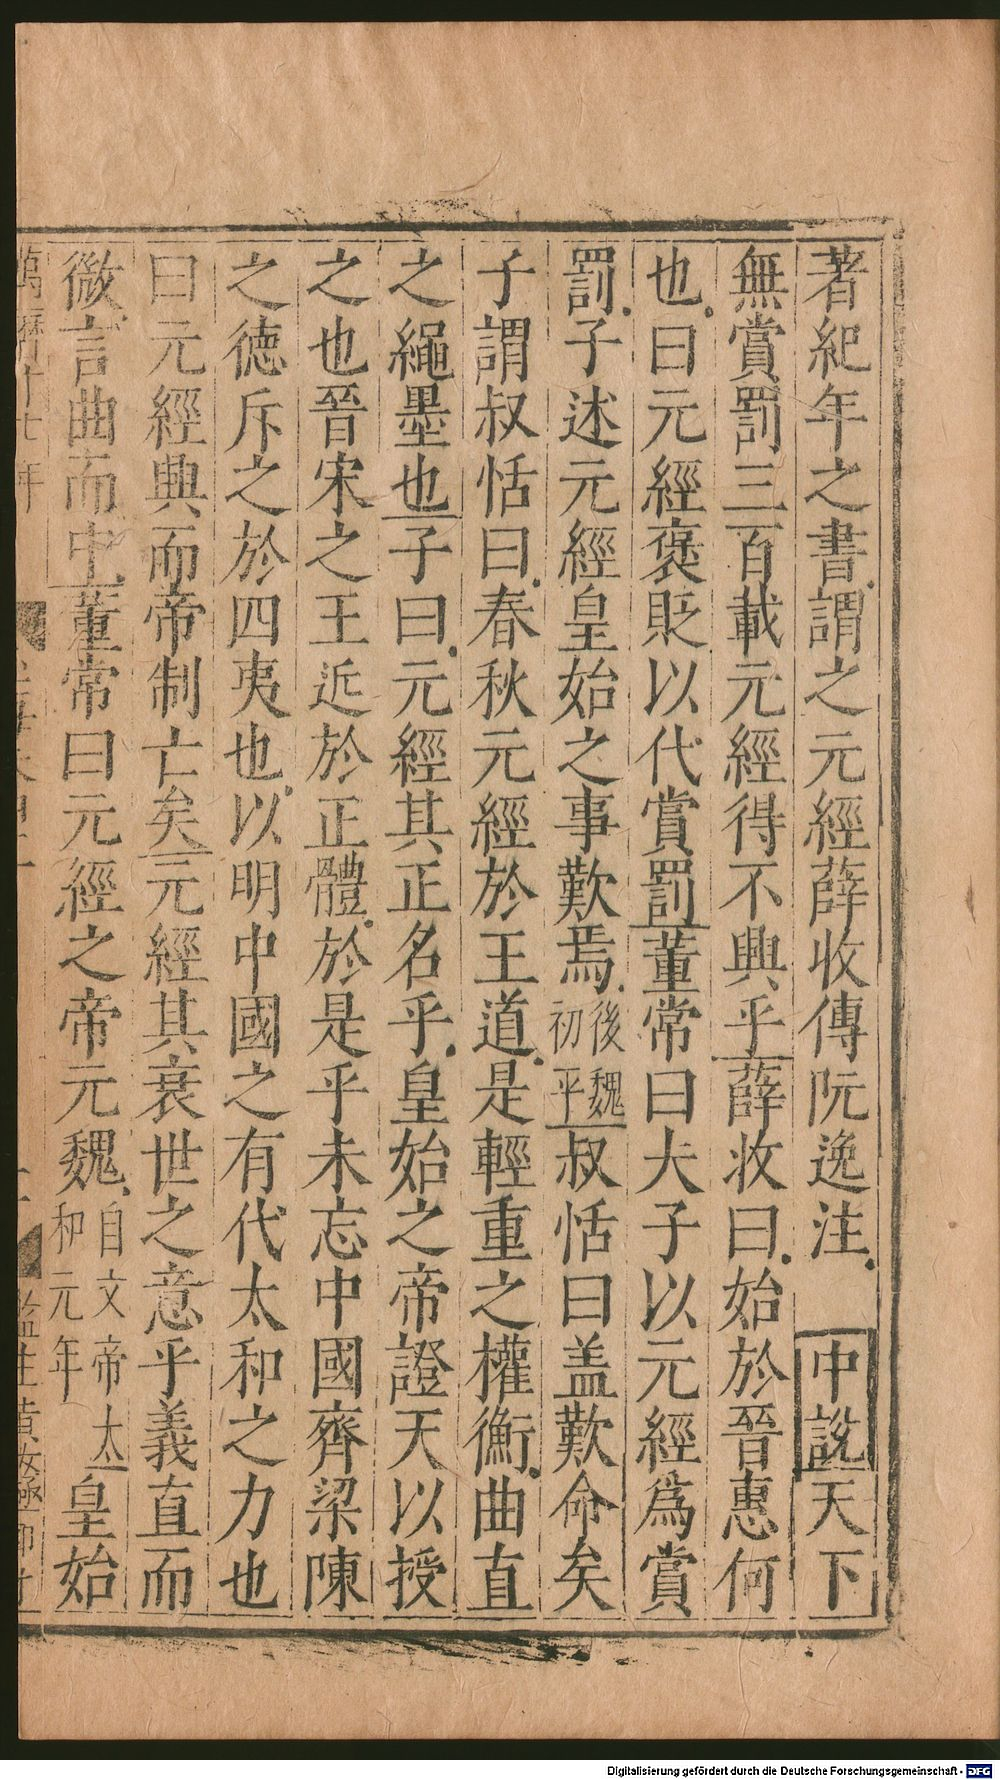 著紀年之書謂之元經薛收傳阮逸注 中說天下
無賞罰三百載元經得不興乎薛收曰始於晉惠何
也曰元經褒貶以代賞罰董常曰夫子以元經爲賞
罰子述元經皇始之事歎焉後魏初平叔恬曰盖歎命矣
子謂叔恬曰春秋元經於王道是輕重之權衡曲直
之繩墨也子曰元經其正名乎皇始之帝證天以授
之也晉宋之王近於正體於是乎未忘中國齊梁陳
之德斥之於四夷也以明中國之有代太和之力也
曰元經典而帝制亡矣元經其衰世之意乎義直而
微言曲而中董常曰元經之帝元魏自文帝太和元年皇始
萬曆十七年
Digitalisierung gefördert durch die Deutsche Forschungsgemeinschaft - DFG